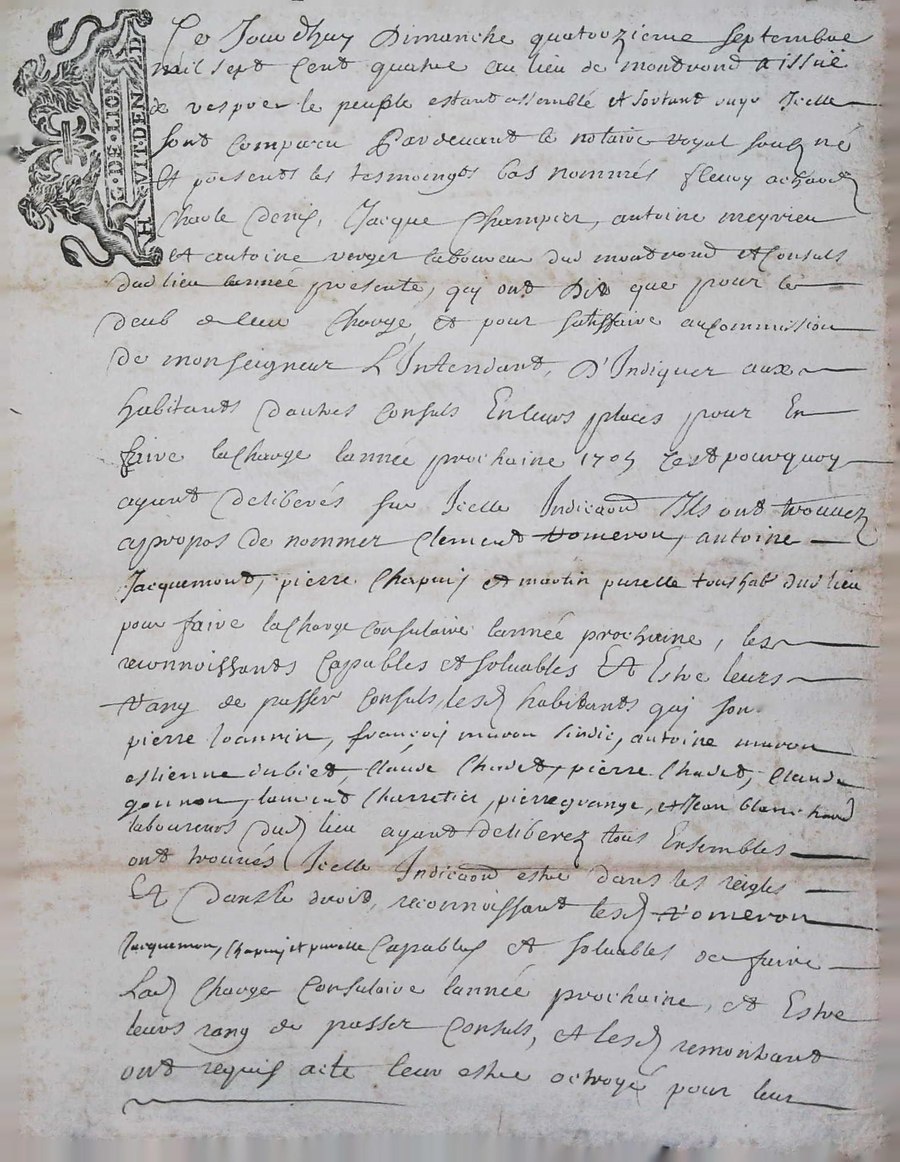 G. DE. LION
H VIT. DEN. D
Ce Jourdhuy Dimanche quatorzieme septembre
mil sept cent quatre au lieu de montrond a issüe
de vespres le peuple estant assemblé et sortant Icelle
sont comparu Pardevant le notaire royal soubzné
Et presents les tesmoingts bas nommés fleury
Charle Denis, Jacque Champier, antoine meyrieu
et antoine verger laboureur dud montrond et Consuls
dud lieu lannée presente, qui ont Dit que pour le
deub de leur Charge et pour satisfaire au Commission
De monseigneur L'Intendant, D'Indiquer aux
habitants dautres Consuls En leurs places pour En
faire la Charge lannée prochaine 1705 Cest pourquoy
ayant deliberés sur Icelle Indicaon Ils ont trouvez
apropos de nommer Clement romeron, antoine
Jacquemont, pierre Chapuis et martin purelle tous hab dud lieu
pour faire la Charge Consulaire lannée prochaine, les
reconnoissants Capables et soluables Et Estre leurs
rang de passer Consuls, lesd habitants qui son
pierre Joannin, françois muron sindic, antoine muron
estienne dubiet, Claude Chavet, pierre Chavet, Claude
gonnon, laurent Charretier, pierre grange, et Jean blanchard
laboureurs dud lieu ayant deliberez tous Ensembles
ont trouvés Icelle Indicaon estre dans les reigles
Et Dans le droit, reconnoissant lesd romeron
Jacquemon, Chapuis et purelle Capables et soluables de faire
Lad Charge Consulaire lannée prochaine, et Estre
leurs rang de passer Consuls, et lesd remontrant
ont requis acte leur estre octroyé pour leur